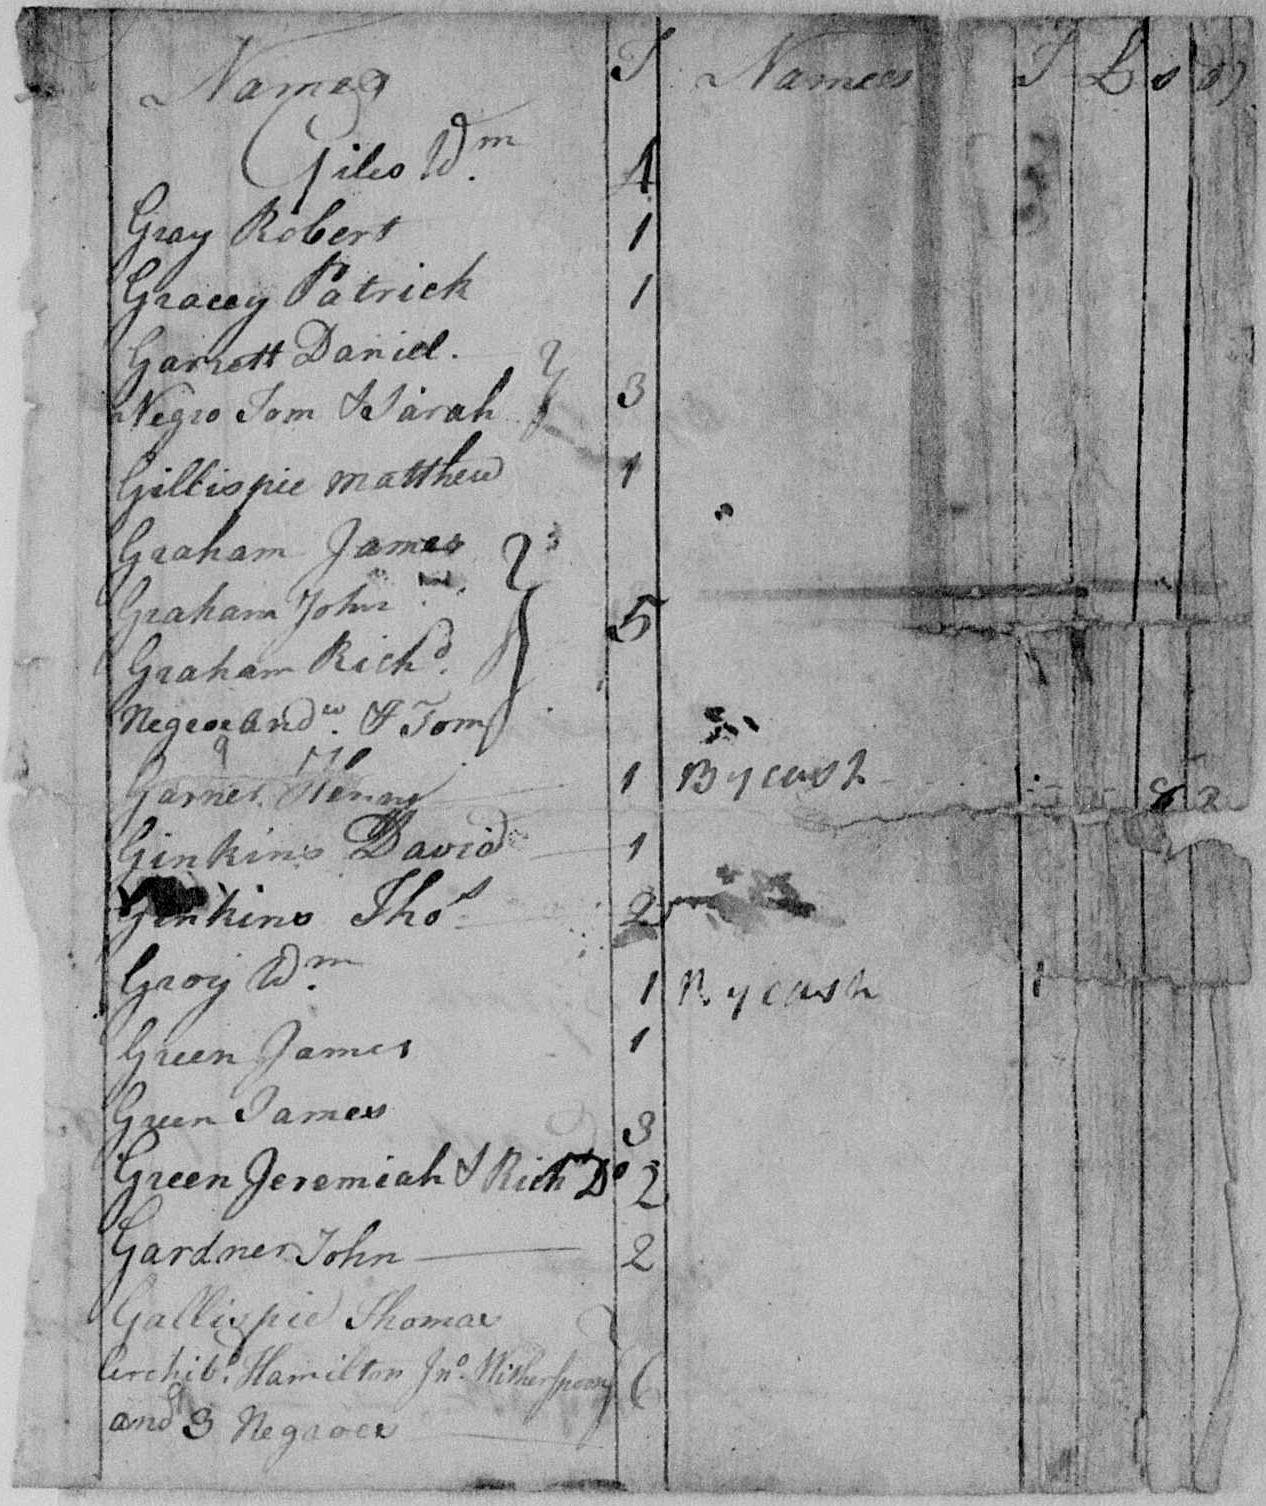 Names T Names T L s D
Giles Wm. 4
Gray Robert 1
Gracey Patrick 1
Garrett Daniel.
Negro Tom & Sarah 3
Gillispie Matthew 1
Graham James
Graham John 5
Graham Richd.
Negroe Andw. & Tom
Garner Henry 1 By cash 8 2
Ginkins David 1
Ginkins Thos 2
Groy Wm. 1 By cash 1
Green James 1
Green James 3
Green Jeremiah & Rich Do 2
Gardner John 2
Gallispie Thomas
Archibd. Hamilton Jno. Witherspoon 6
and 3 Negroes